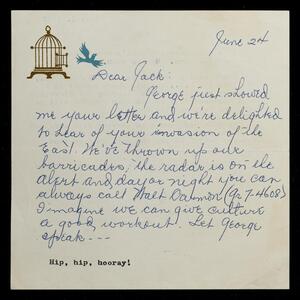 June 24
Dear Jack:
George just showed
me your letter and we're delighted
to hear of your invasion of the
East. We've thrown up our
barricades, the radar is on the
alert and day or night you can
always call Walt Damon (9-7-4608)
I imagine we can give culture
a good workout. Let George
speak ---
Hip, hip, hooray!